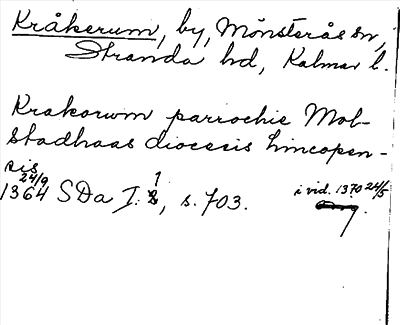 Kråkerum, by, Mönsterås sn,
Stranda hd, Kalmar l.
Krakorum parrochie Mol-
stadhaas diocesis Lincopen-
sis
24/9
1364 SDa I. 1, s. 703.
i vid. 1370 24/5